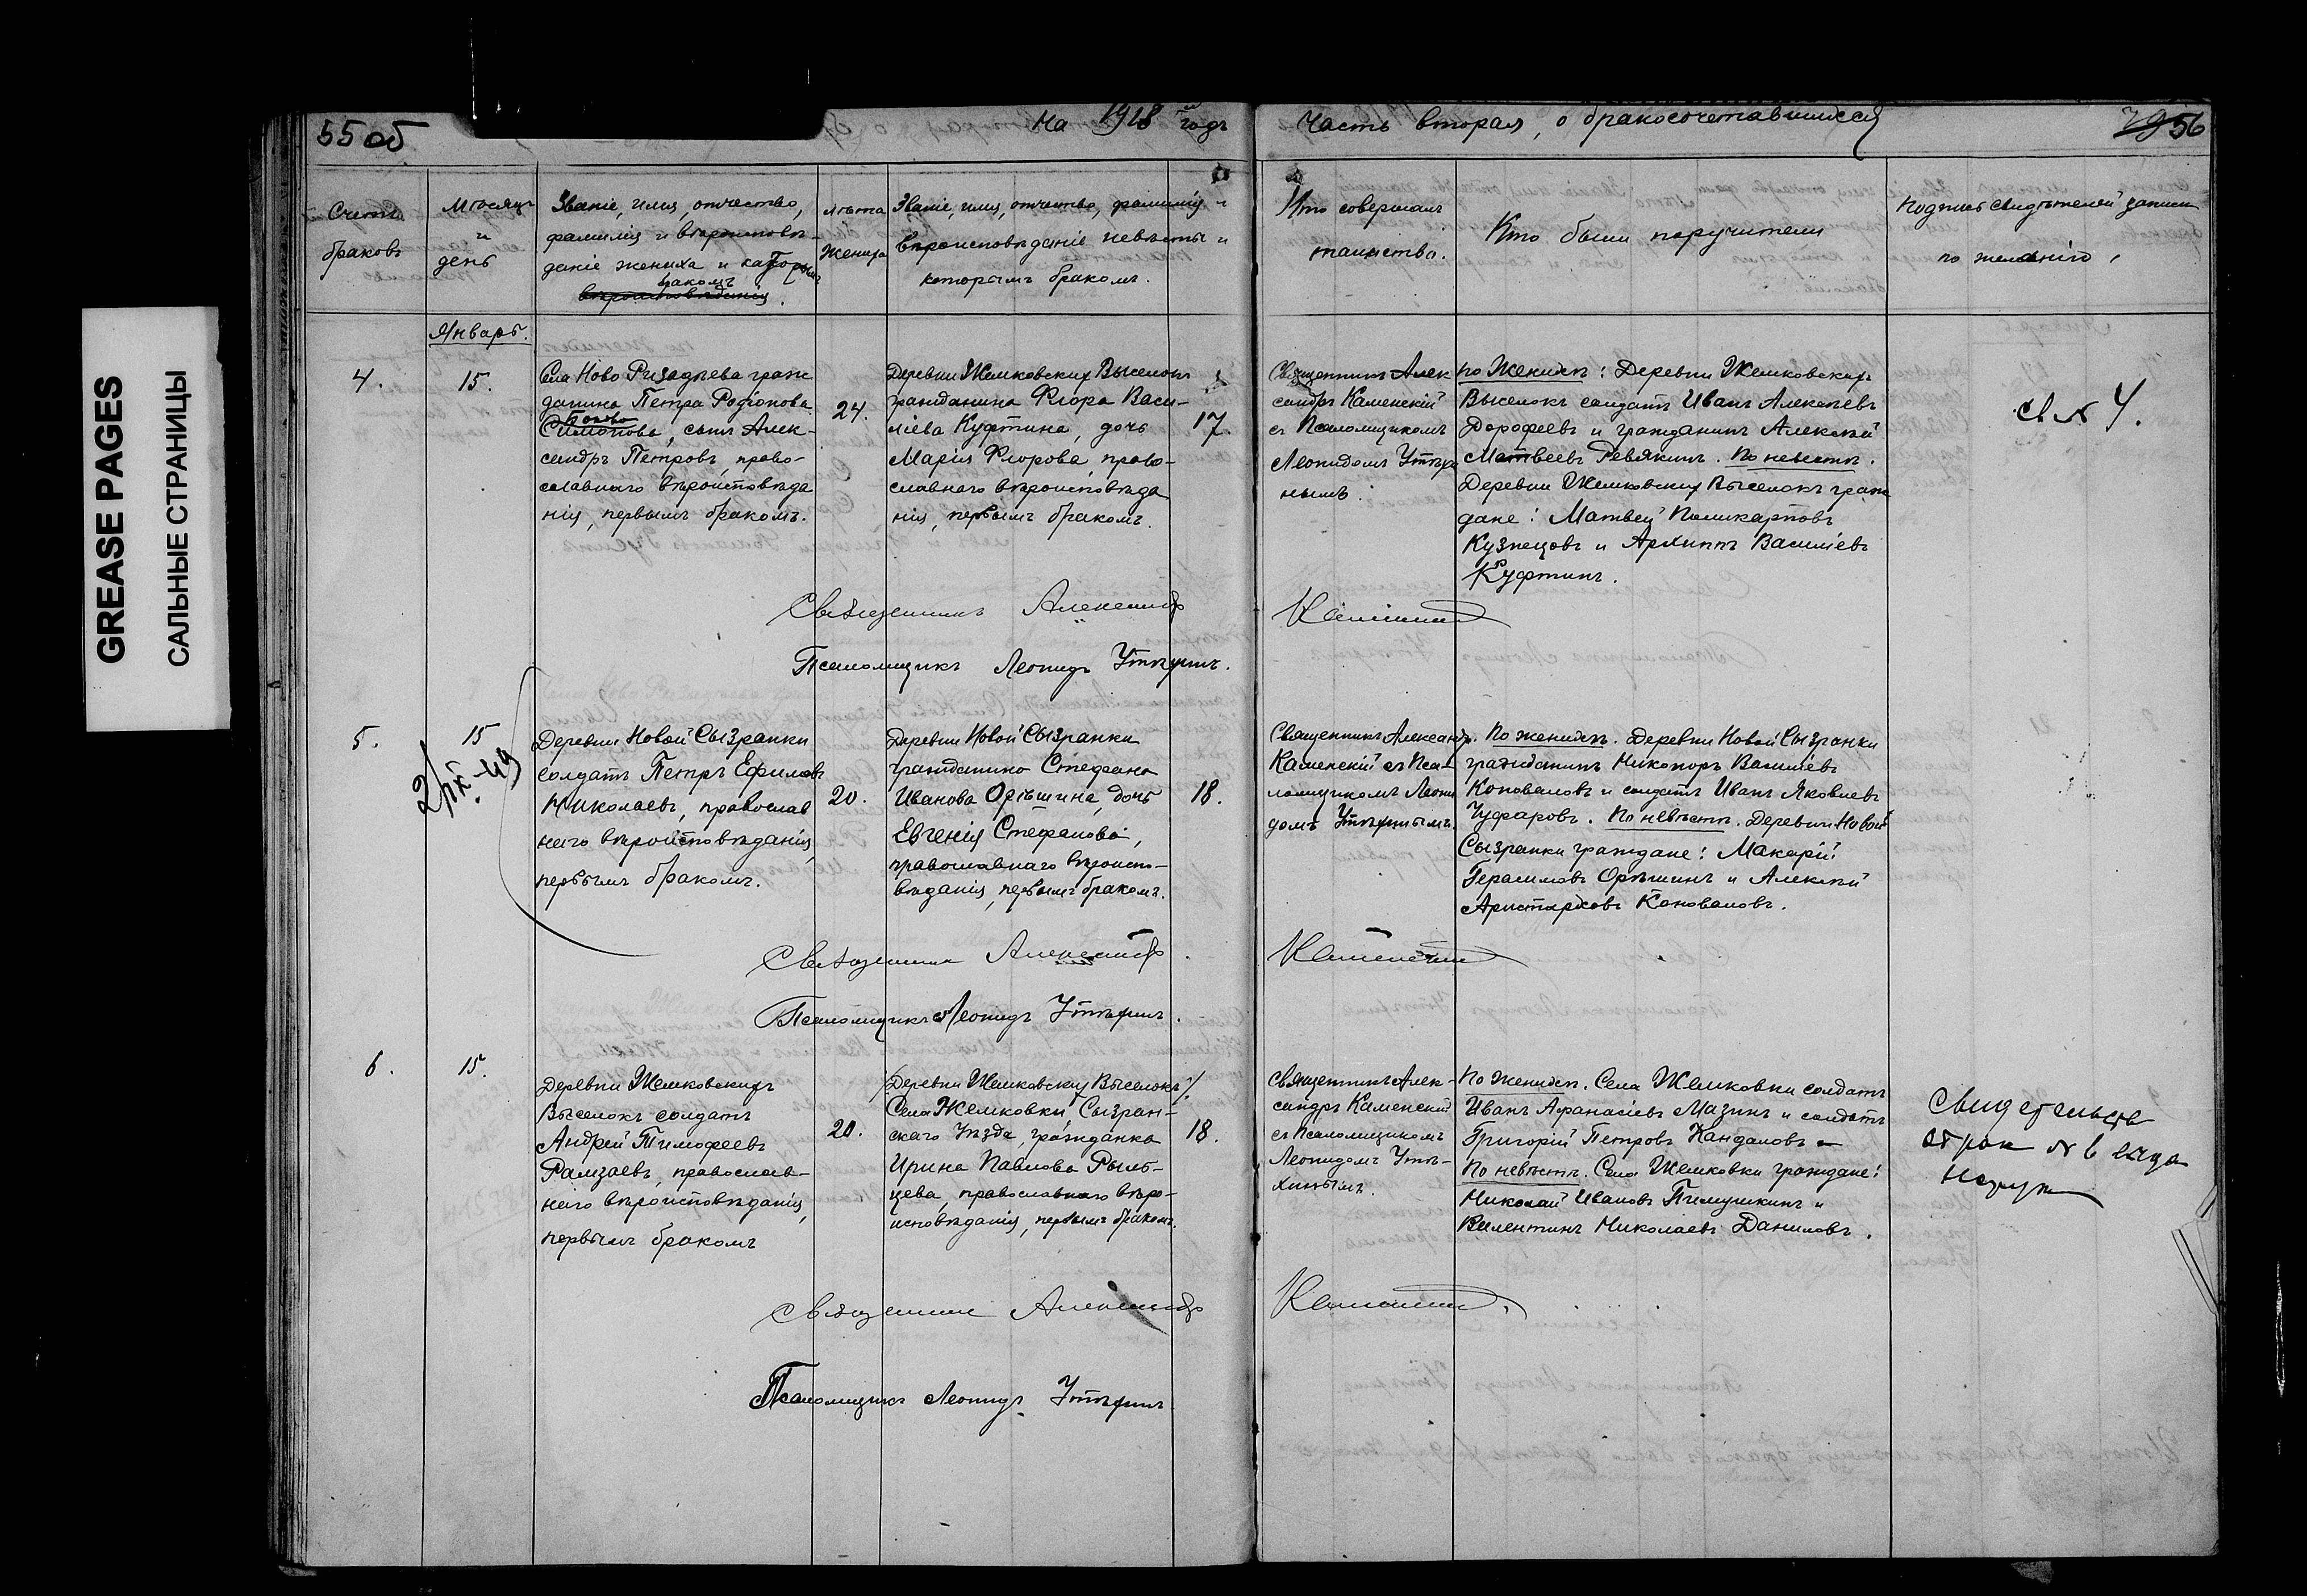 GREASE PAGES
САЛЬНЫЕ СТРАНИЦЫ
55 об
На 1918 й годъ
Часть вторая, о бракосочетавшихся
56
Счетъ
браковъ
Мѣсяцъ
и
день
Званіе, имя, отчество,
фамилія и вѣроисповѣ-
даніе жениха и каторымъ
бракомъ
вѣроисповѣданія.
лѣта
жениха
Званіе, имя, отчество, фамилія и
вѣроисповѣданіе невѣсты и
которымъ бракомъ.
Кто совершалъ
таинство.
Кто были поручители
Подпись свидѣтелей записи
по желанію,
Январь.
4.
15.
Села Ново Ризадѣева граж
данина Петра Родіонова
Симонова, сынъ Алек-
сандръ Петровъ, право-
славнаго вѣроисповѣда
нія, первымъ бракомъ.
24.
Деревни Жемковскихъ Выселокъ
гражданина Флора Васи-
ліева Куфтина, дочь
Марія Флорова, право-
славнаго вѣроисповѣда
нія, первымъ бракомъ.
17.
Священникъ Алек
сандръ Каменскій
съ Псаломщикомъ
Леонидомъ Утѣхи
нымъ.
по Женихѣ: Деревни Жемковскихъ
Выселокъ солдатъ Иванъ Алексѣевъ
Дорофеевъ и гражданинъ Алексѣй
Матвеевъ Ревякинъ. По невѣстѣ.
Деревни Жемковскихъ Выселокъ граж
дане: Матвей Поликарповъ
Кузнецовъ и Архиппъ Василіевъ
Куфтинъ.
св № 4.
Священникъ Александръ Каменскій
Псаломщикъ Леонидъ Утѣхинъ.
5.
15
2/IX-49
Деревни Новой Сызранки
солдатъ Петръ Ефимовъ
Николаевъ, православ
наго вѣроисповѣданія,
первымъ бракомъ.
20.
Деревни Новой Сызранки
гражданина Стефана
Иванова Орѣшина, дочь
Евгенія Стефанова,
православнаго вѣроиспо-
вѣданія, первымъ бракомъ.
18.
Священникъ Александръ
Каменскій съ Пса-
ломщикомъ Леони
домъ Утѣхинымъ.
По женихѣ. Деревни Новой Сызранки
гражданинъ Никоноръ Василіевъ
Коноваловъ и солдатъ Иванъ Яковлевъ
Чуфаровъ. По невѣстѣ. Деревни Новой
Сызранки граждане: Макарій
Герасимовъ Орѣшинъ и Алексѣй
Аристарховъ Коноваловъ.
Священникъ Александръ Каменскій
Псаломщикъ Леонидъ Утѣхинъ.
6.
15.
Деревни Жемковскихъ
Выселокъ солдатъ
Андрей Тимофеевъ
Рамзаевъ, православ-
наго вѣроисповѣданія,
первымъ бракомъ
20.
(Деревни Жемковскихъ Выселокъ)
Села Жемковки, Сызран-
скаго Уѣзда, гражданка
Ирина Павлова Рыль-
цева, православнаго вѣро-
исповѣданія, первымъ бракомъ.
18.
Священникъ Алек-
сандръ Каменскій
съ Псаломщикомъ
Леонидомъ Утѣ-
хинымъ.
По Женихѣ. Села Жемковки солдатъ
Иванъ Афанасіевъ Мазинъ и солдатъ
Григорій Петровъ Кандаловъ
По невѣстѣ. Села Жемковки граждане:
Николай Ивановъ Пимушкинъ и
Валентинъ Николаевъ Даниловъ.
Свидетельств
о брак № 6
Священникъ Александръ Каменскій.
Псаломщикъ Леонидъ Утѣхинъ